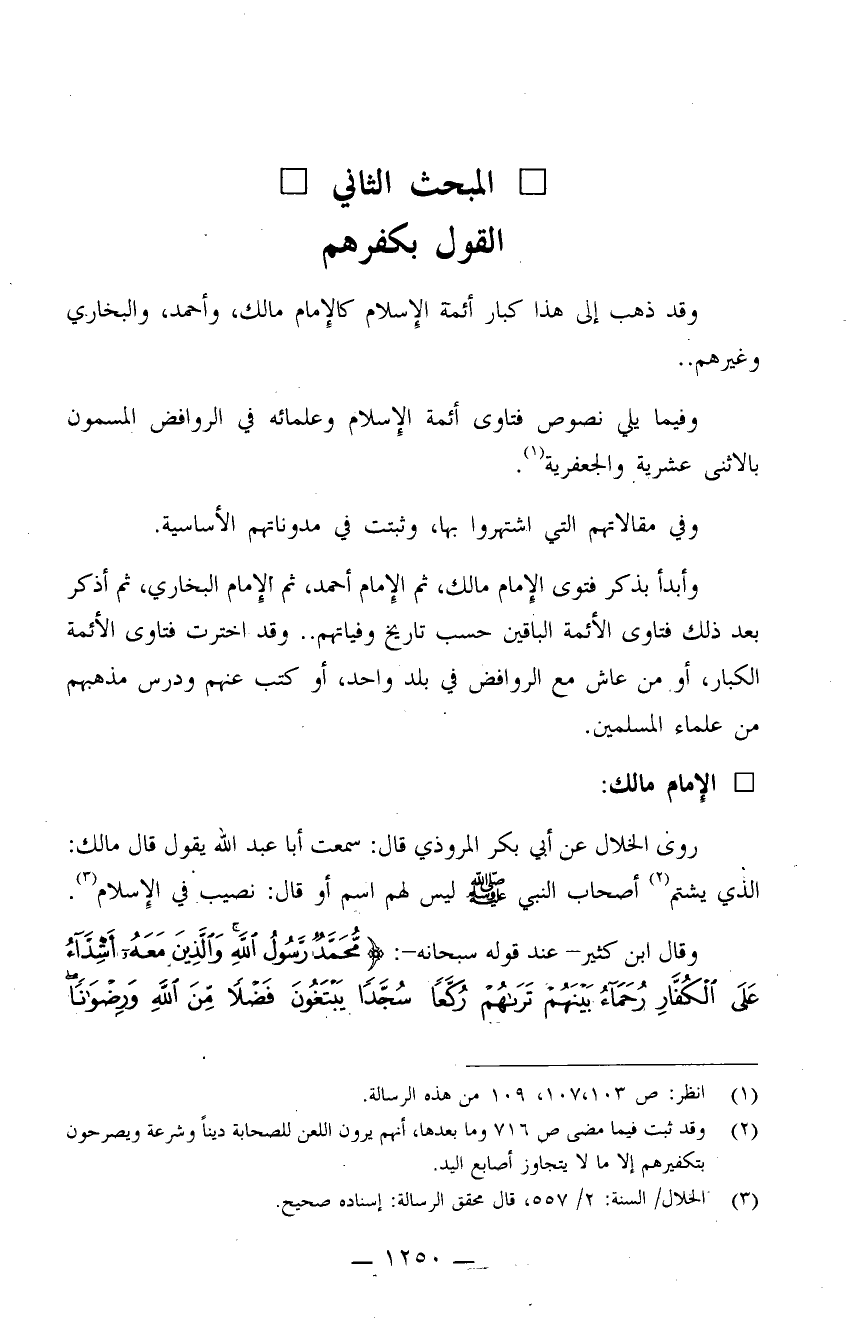 □ المبحث الثاني □
القول بكفرهم
وقد ذهب إلى هذا كبار أئمة الإسلام كالإمام مالك، وأحمد، والبخاري
وغيرهم..
وفيما يلي نصوص فتاوى أئمة الإسلام وعلمائه في الروافض المسمون
بالاثنى عشرية والجعفرية(١).
وفي مقالاتهم التي اشتهروا بها، وثبتت في مدوناتهم الأساسية.
وأبدأ بذكر فتوى الإمام مالك، ثم الإمام أحمد، ثم الإمام البخاري، ثم أذكر
بعد ذلك فتاوى الأئمة الباقين حسب تاريخ وفياتهم.. وقد اخترت فتاوى الأئمة
الكبار، أو من عاش مع الروافض في بلد واحد، أو كتب عنهم ودرس مذهبهم
من علماء المسلمين.
□ الإمام مالك:
روى الخلال عن أبي بكر المروذي قال: سمعت أبا عبد الله يقول قال مالك:
الذي يشتم(٢) أصحاب النبي ﷺ ليس لهم اسم أو قال: نصيب في الإسلام(٣).
وقال ابن كثير– عند قوله سبحانه–: ﴿ مُّحَمَّدٌ رَّسُولُ ٱللَّهِ ۚ وَٱلَّذِينَ مَعَهُۥٓ أَشِدَّآءُ
عَلَى ٱلْكُفَّارِ رُحَمَآءُ بَيْنَهُمْ تَرَىٰهُمْ رُكَّعًا سُجَّدًا يَبْتَغُونَ فَضْلًا مِّنَ ٱللَّهِ وَرِضْوَٰنًا ۖ
(١) انظر: ص ١٠٣،١٠٧، ١٠٩ من هذه الرسالة.
(٢) وقد ثبت فيما مضى ص ٧١٦ وما بعدها، أنهم يرون اللعن للصحابة ديناً وشرعة ويصرحون
بتكفيرهم إلا ما لا يتجاوز أصابع اليد.
(٣) الخلال/ السنة: ٢/ ٥٥٧، قال محقق الرسالة: إسناده صحيح.
— ١٢٥٠ —